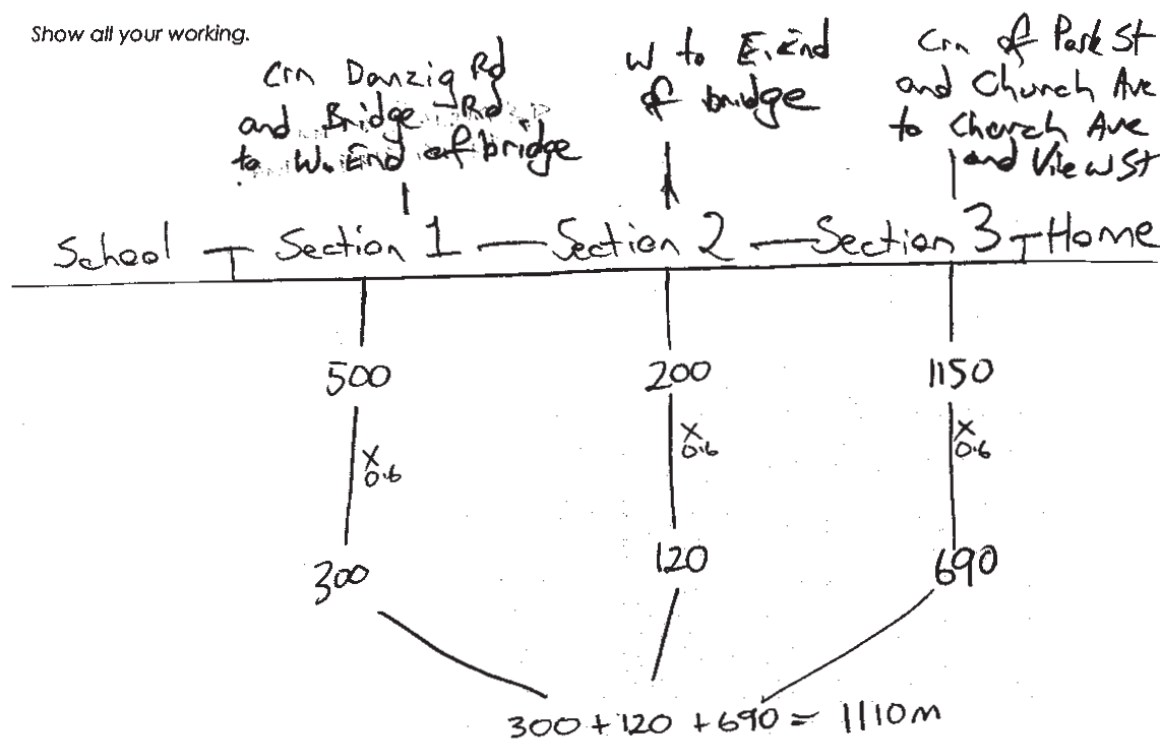 Show all your working.
Crn Danzig Rd
and Bridge Rd
to W. End of bridge
W to E. End
of bridge
Crn of Park St
and Church Ave
to Church Ave
and View St
School — Section 1 — Section 2 — Section 3 — Home
500 200 1150
x 0.6 x 0.6 x 0.6
300 120 690
300 + 120 + 690 = 1110m